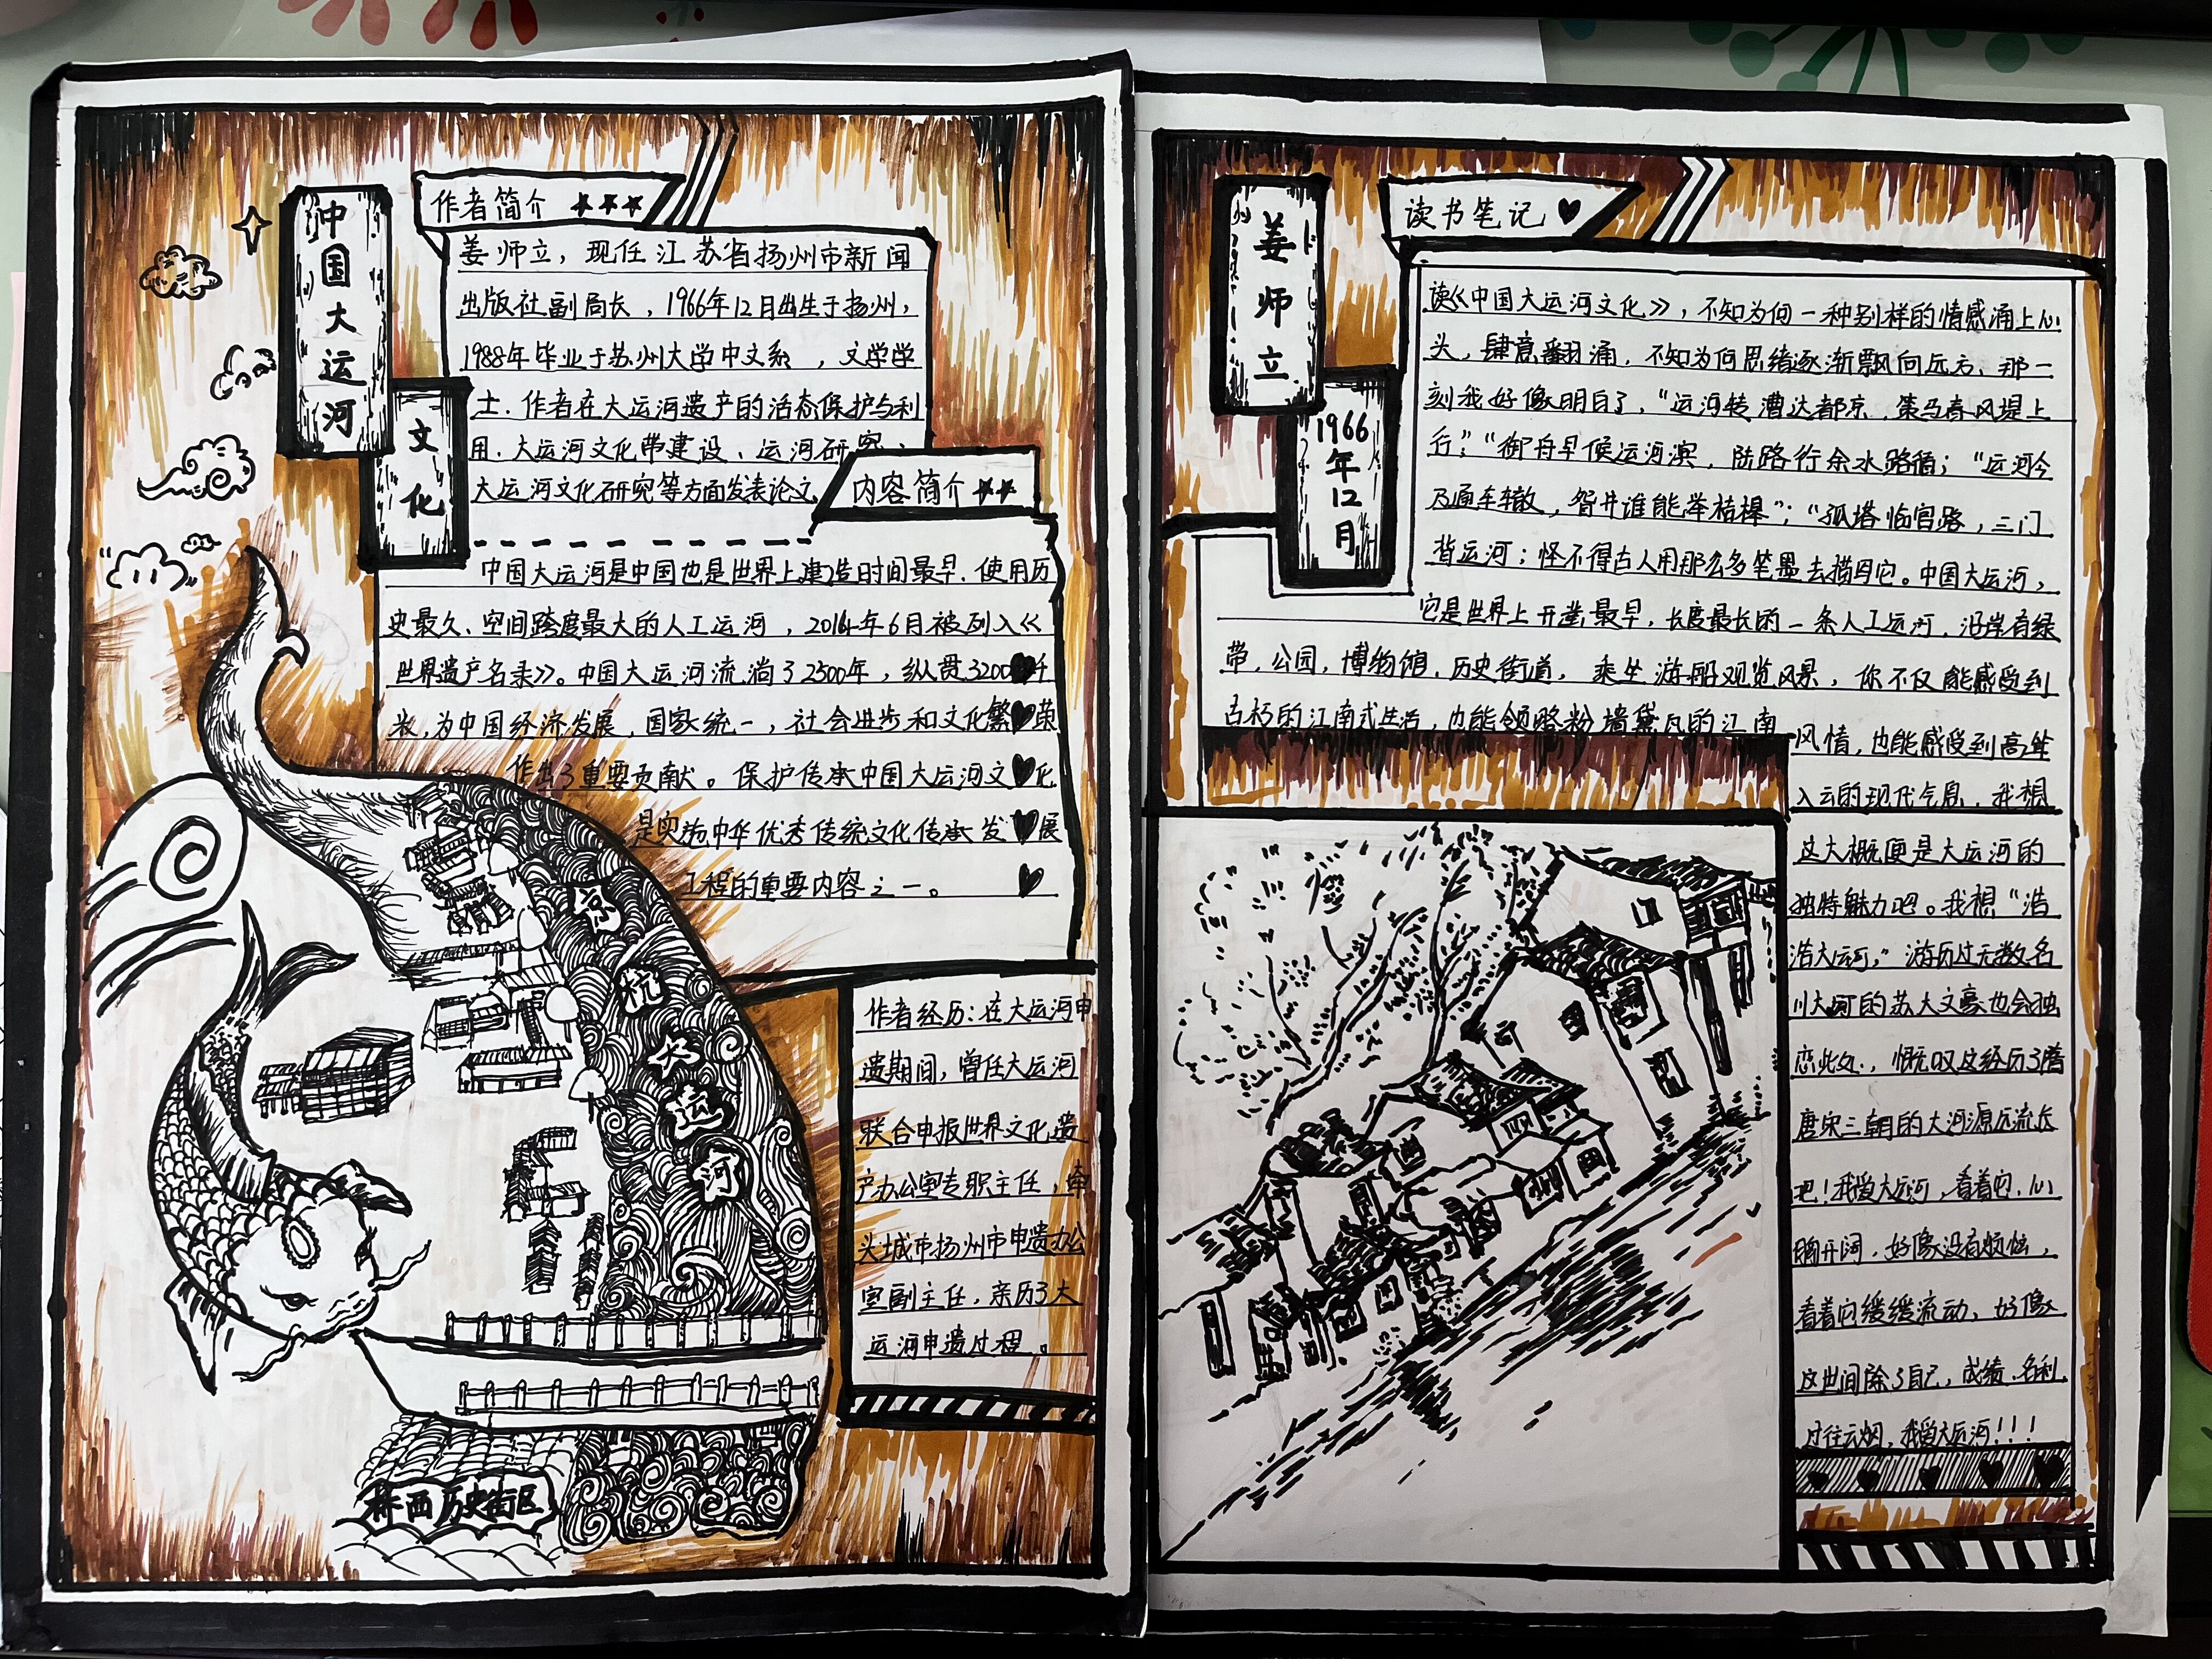 中国大运河
文化
作者简介
姜师立，现任江苏省扬州市新闻
出版社副局长，1966年12月出生于扬州，
1988年毕业于苏州大学中文系，文学学
士．作者在大运河遗产的活态保护与利
用、大运河文化带建设、运河研究、
大运河文化研究等方面发表论文
内容简介
中国大运河是中国也是世界上建造时间最早、使用历
史最久、空间跨度最大的人工运河，2014年6月被列入《
世界遗产名录》。中国大运河流淌了2500年，纵贯3200千
米，为中国经济发展，国家统一，社会进步和文化繁荣
作出了重要贡献。保护传承中国大运河文化
是实施中华优秀传统文化传承发展
工程的重要内容之一。
京杭大运河
作者经历：在大运河申
遗期间，曾任大运河
联合申报世界文化遗
产办公室专职主任，牵
头城市扬州市申遗办公
室副主任，亲历了大
运河申遗过程。
桥西历史街区
姜师立
1966年12月
读书笔记
读《中国大运河文化》，不知为何一种别样的情感涌上心
头，肆意翻涌，不知为何思绪逐渐飘向远方，那一
刻我好像明白了，“运河转漕达都京，策马春风堤上
行”；“御舟早候运河滨，陆路行余水路循；“运河今
乃通车辙，智井谁能举桔槔”；“孤塔临官路，三门
背运河；怪不得古人用那么多笔墨去描写它。中国大运河，
它是世界上开凿最早，长度最长的一条人工运河，沿岸有绿
带，公园，博物馆，历史街道，乘坐游船观览风景，你不仅能感受到
古朴的江南式生活，也能领略粉墙黛瓦的江南
风情，也能感受到高耸
入云的现代气息，我想
这大概便是大运河的
独特魅力吧。我想“浩
浩大运河，”游历过无数名
川大河的苏大文豪也会独
恋此处，慨叹这经历了隋
唐宋三朝的大河源远流长
吧！我爱大运河，看着它，心
胸开阔，好像没有烦恼，
看着它缓缓流动，好像
这世间除了自己，成绩、名利，
过往云烟，我爱大运河！！！